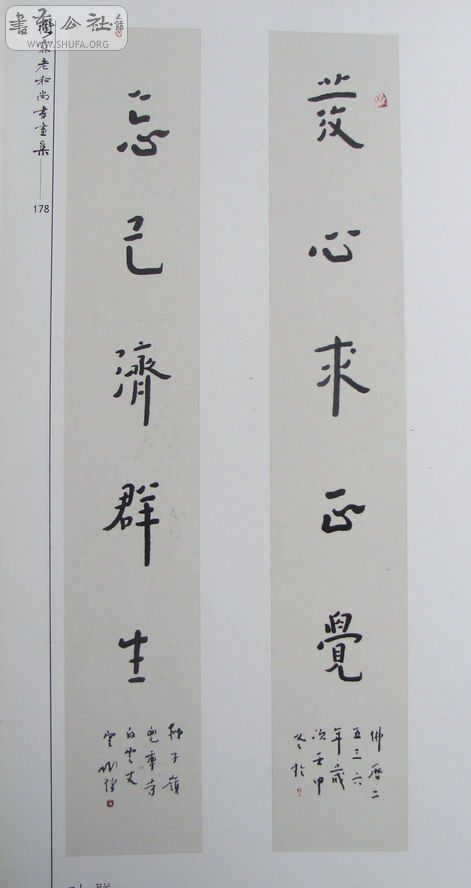 書法公社
WWW.SHUFA.ORG
老和尚書畫集
178
發心求正覺
佛曆二
五三六
年歲
次壬申
冬於
忘己濟群生
獅子嶺
兜率寺
白雲丈
室